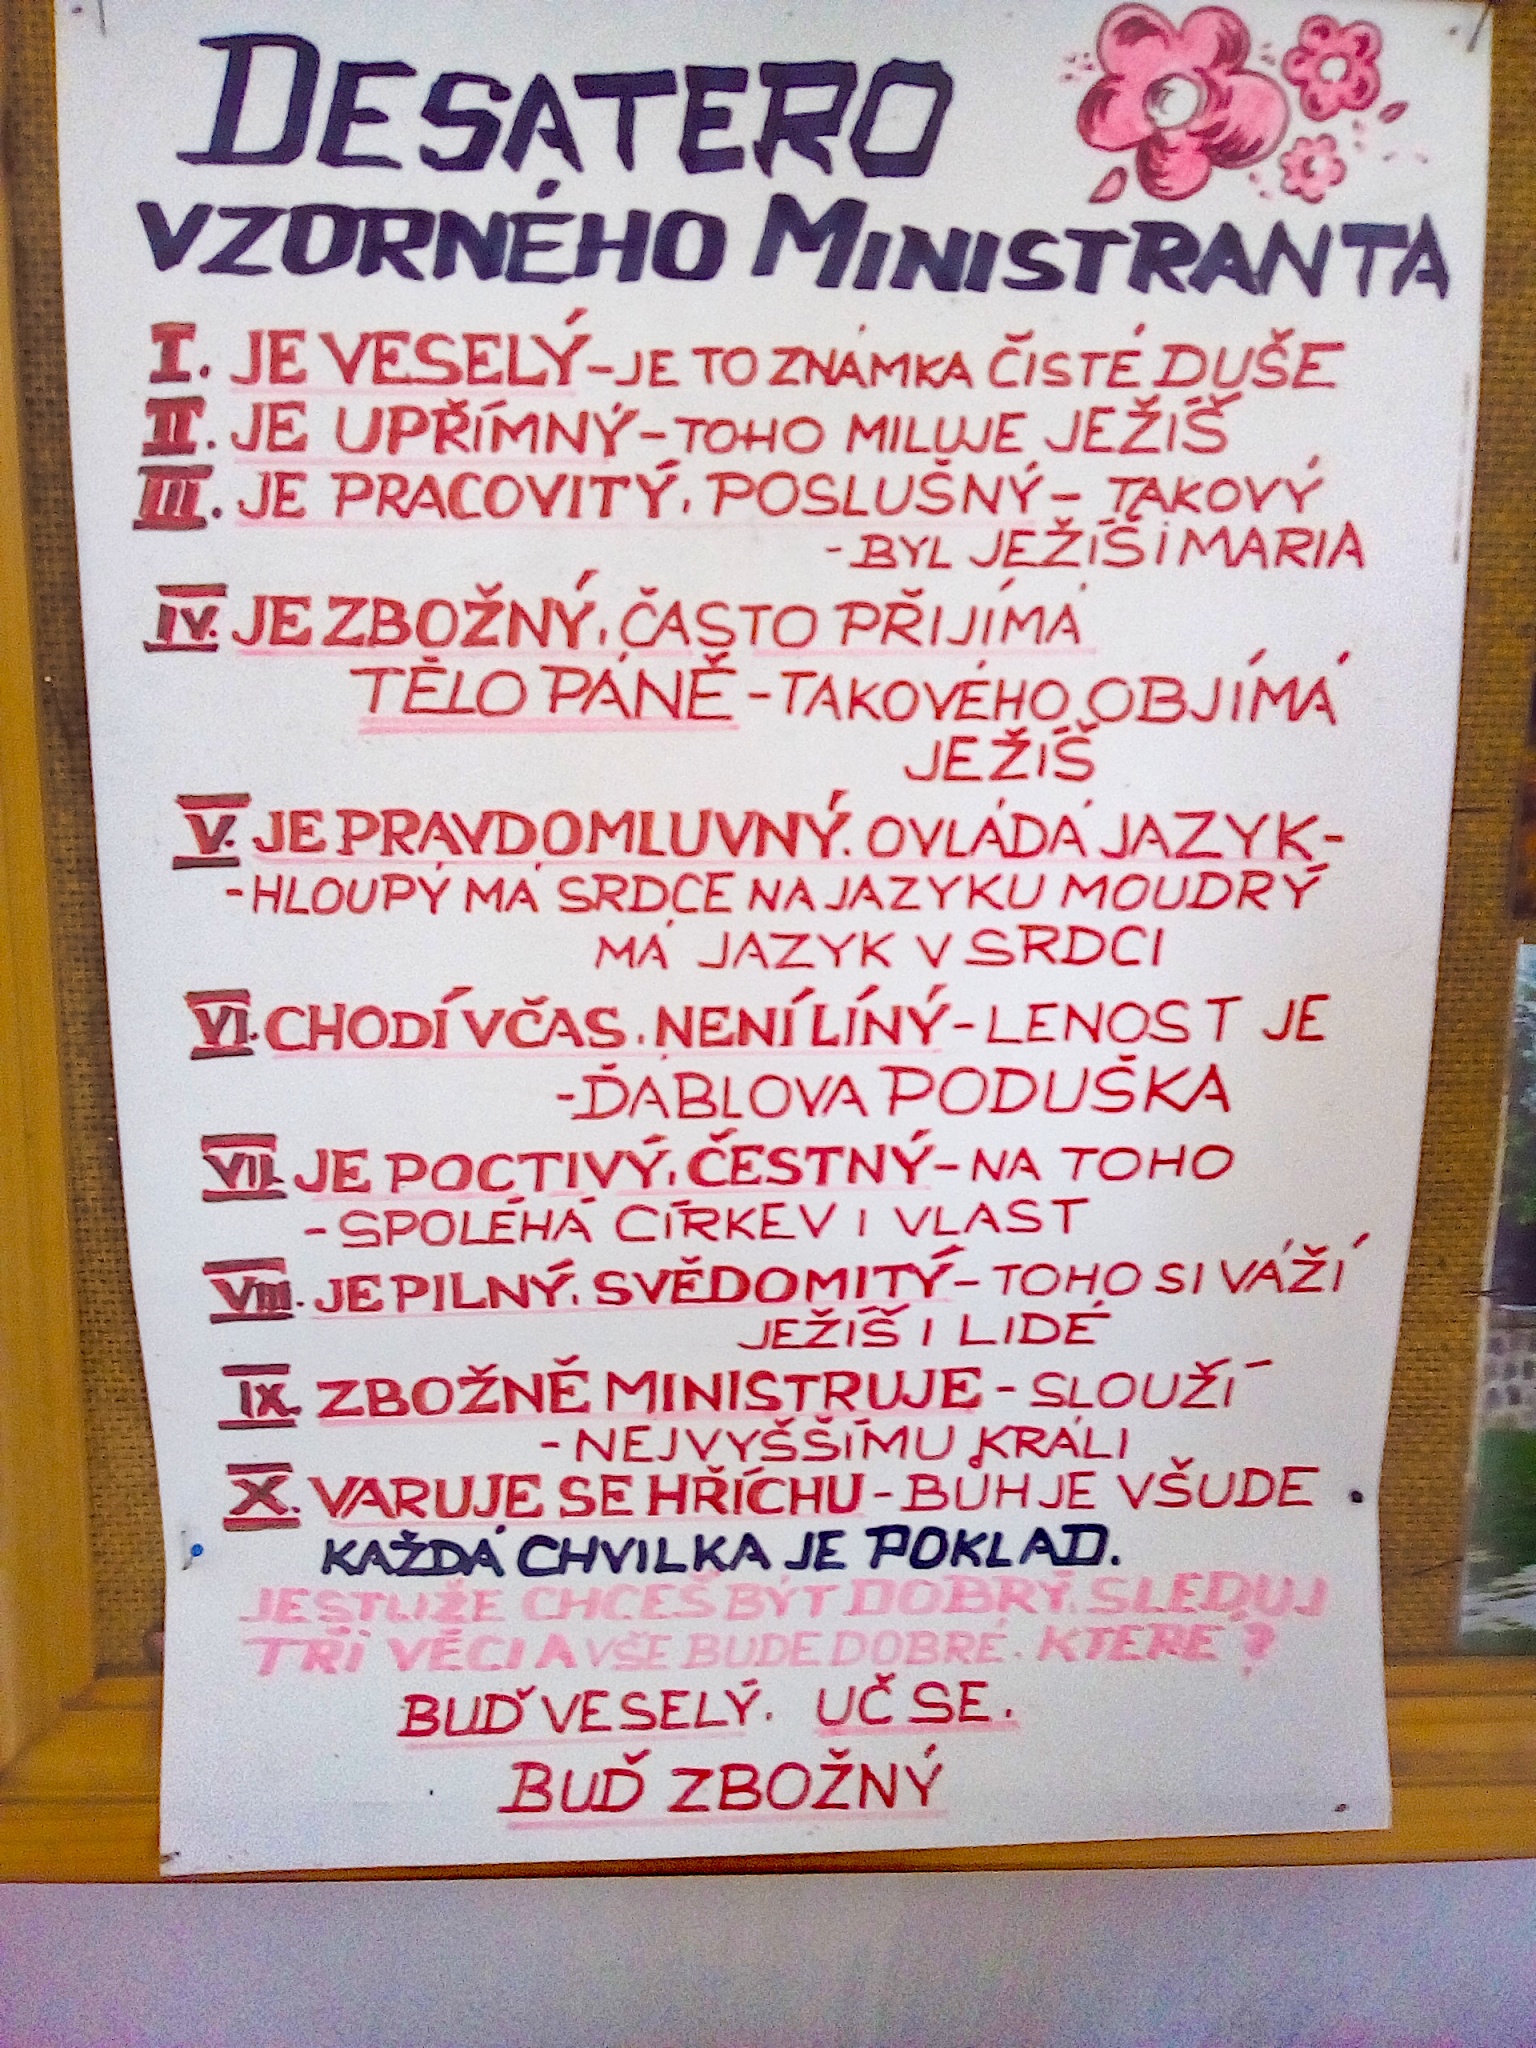 DESATERO
VZORNÉHO MINISTRANTA
I. JE VESELÝ-JE TO ZNÁMKA ČISTÉ DUŠE
II. JE UPŘÍMNÝ-TOHO MILUJE JEŽÍŠ
III. JE PRACOVITÝ, POSLUŠNÝ- TAKOVÝ
-BYL JEŽÍŠ i MARIA
IV. JE ZBOŽNÝ, ČASTO PŘIJÍMÁ
TĚLO PÁNĚ-TAKOVÉHO OBJÍMÁ
JEŽÍŠ
V. JE PRAVDOMLUVNÝ. OVLÁDÁ JAZYK-
-HLOUPÝ MÁ SRDCE NA JAZYKU MOUDRÝ
MÁ JAZYK V SRDCI
VI. CHODÍ VČAS. NENÍ LÍNÝ-LENOST JE
-ĎÁBLOVA PODUŠKA
VII. JE POCTIVÝ, ČESTNÝ-NA TOHO
-SPOLÉHÁ CÍRKEV I VLAST
VIII. JE PILNÝ. SVĚDOMITÝ-TOHO SI VÁŽÍ
JEŽÍŠ I LIDÉ
IX. ZBOŽNĚ MINISTRUJE-SLOUŽÍ
-NEJVYŠŠÍMU KRÁLI
X. VARUJE SE HŘÍCHU-BŮH JE VŠUDE
KAŽDÁ CHVILKA JE POKLAD.
JESTLIŽE CHCEŠ BÝT DOBRÝ, SLEDUJ
TŘI VĚCI A VŠE BUDE DOBRÉ. KTERÉ?
BUĎ VESELÝ. UČ SE.
BUĎ ZBOŽNÝ